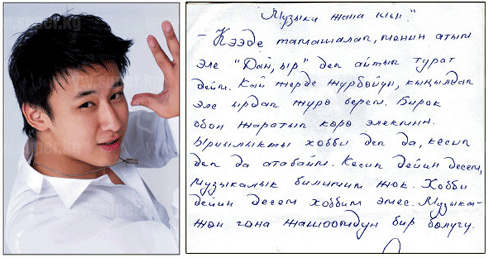 "Музыка жана мын"
- Кээде тамашалап, менин атым
эле "Дай, ыр" деп айтып турат
дейм. Кай жерде жүрбөйүн, кыңылдап
эле ырдап жүрө берем. Бирок
обон жаратып көрө элекмин.
Ырчылыкты хобби деп да, кесип
деп да атабайм. Кесип дейин десем,
музыкалык билимим жок. Хобби
дейин десем хоббим эмес. Музыка-
жөн гана жашоомдун бир бөлүгү.
super.kg